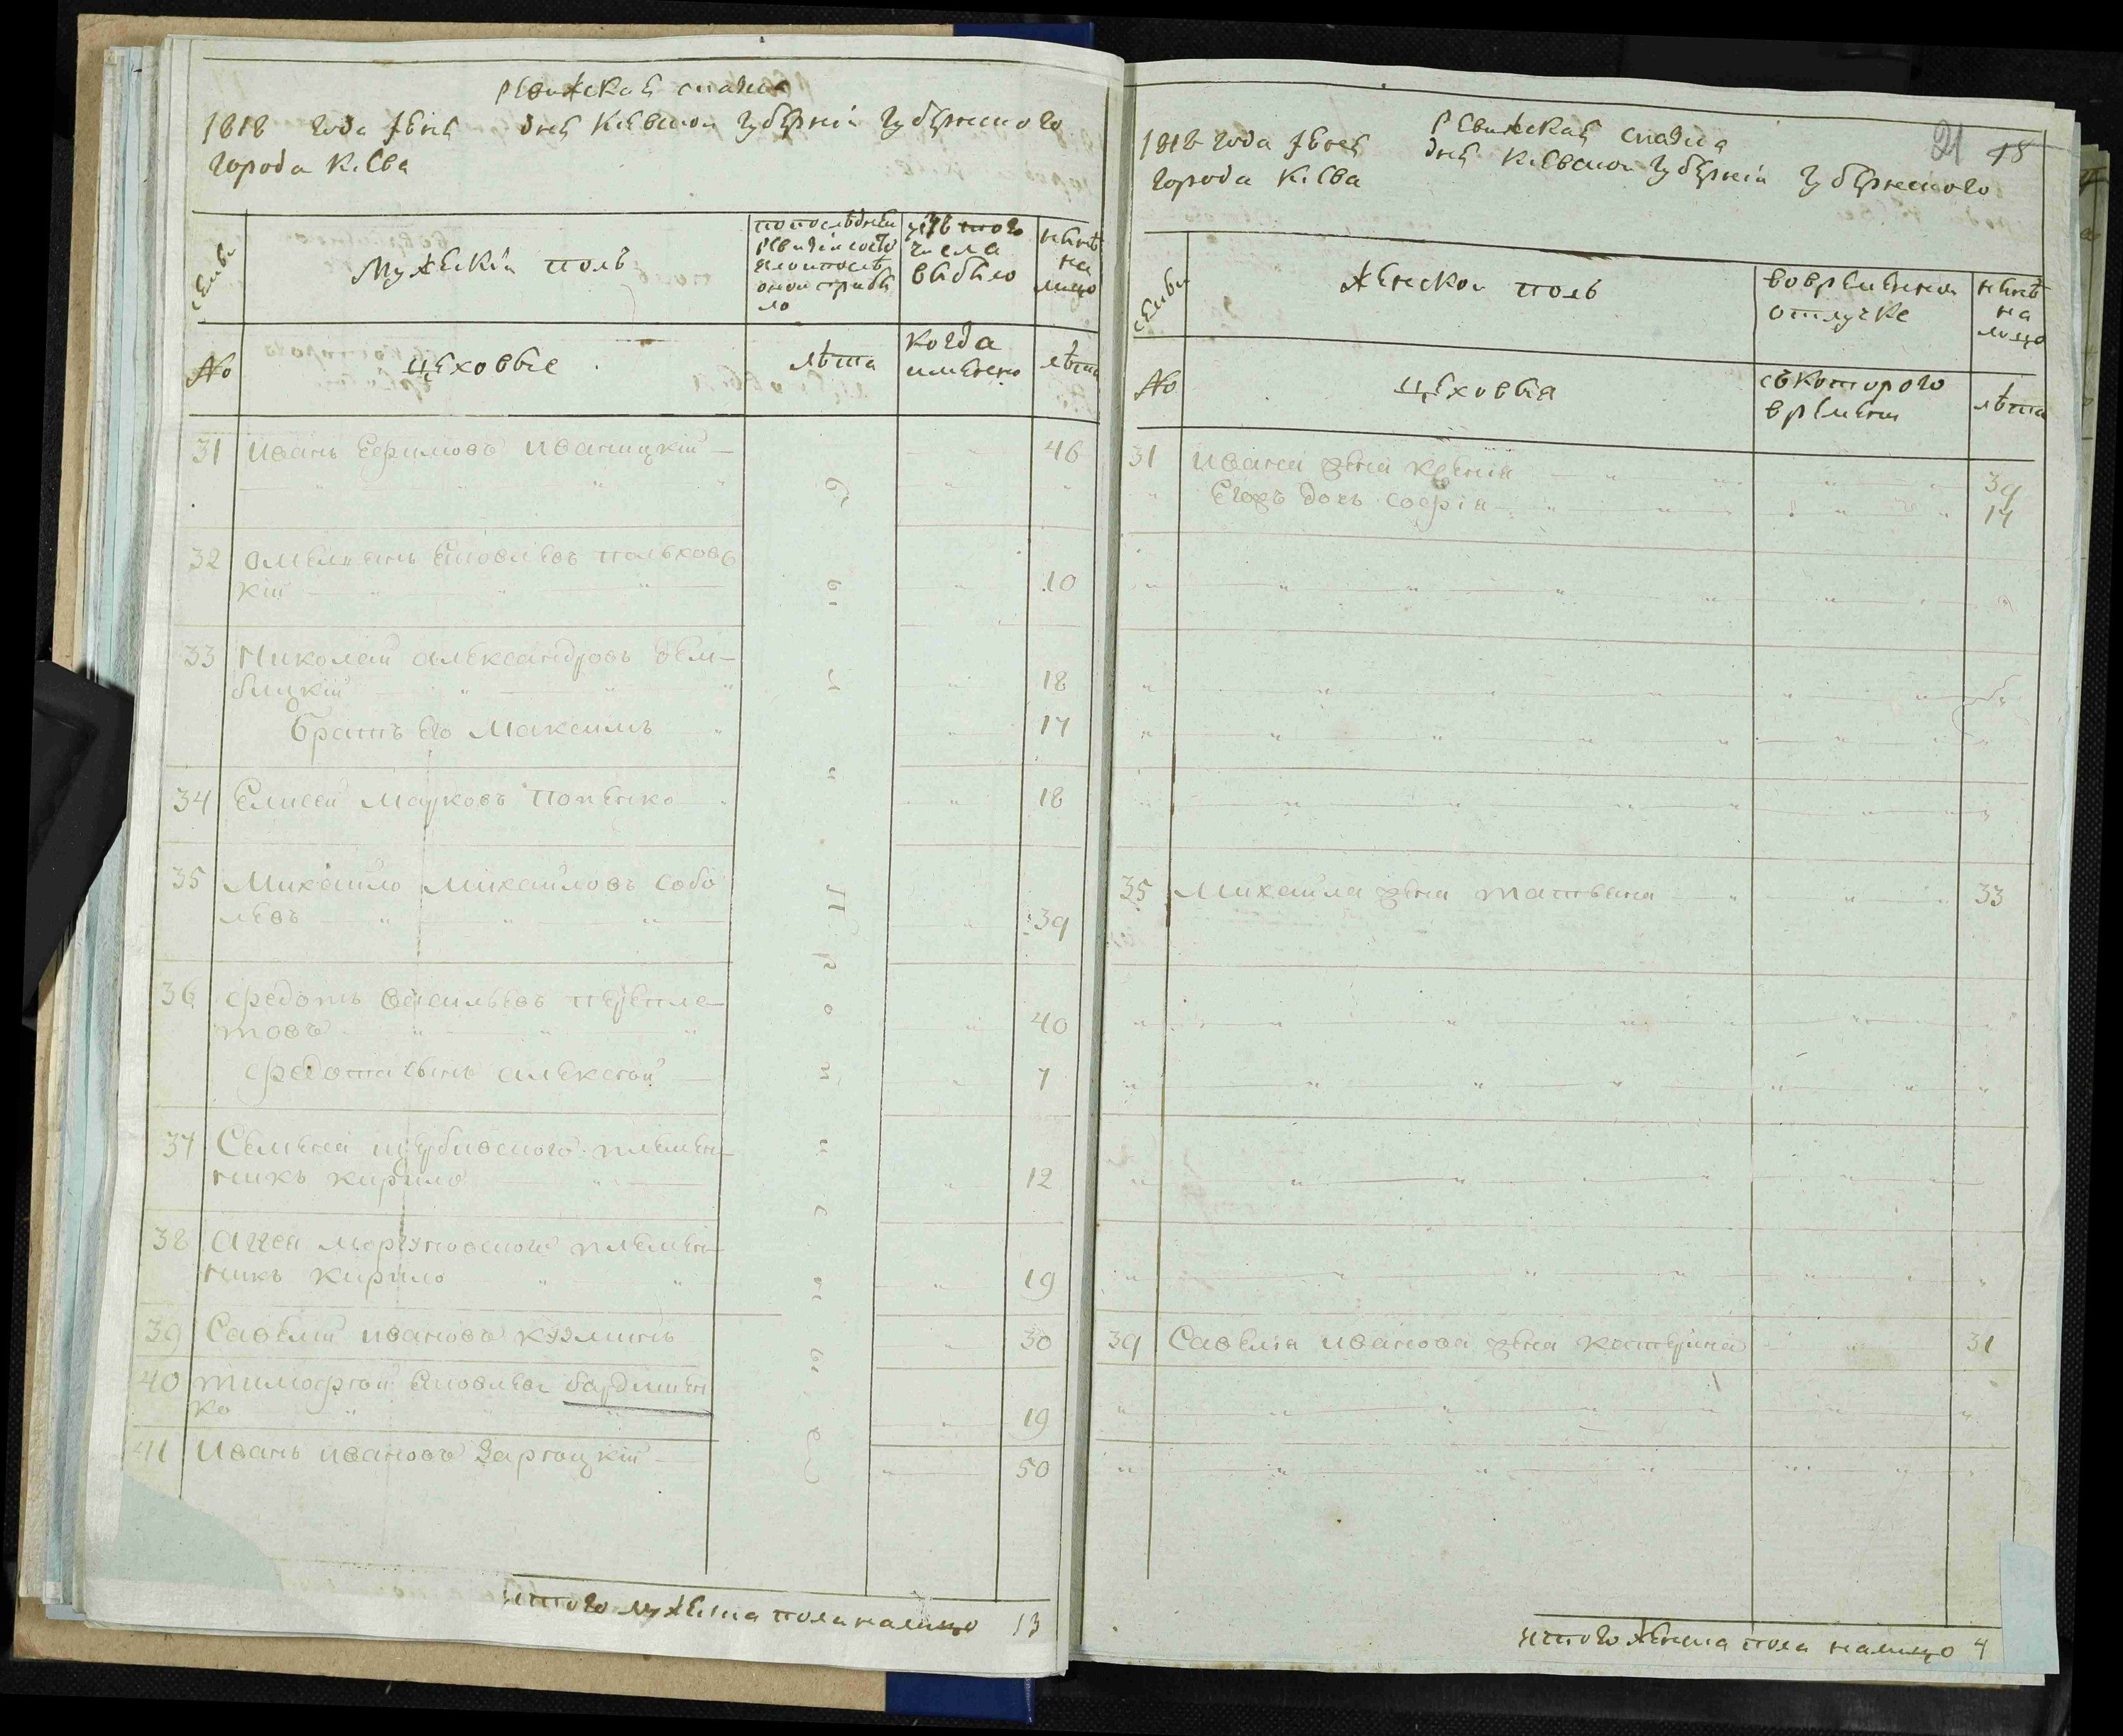 Ревижская сказка
1818 года Июня дня Киевской губернии губернского
города Киева
семьи
Мужескій полъ
по последней
ревизіи состо
яло и после
оной прибы
ло
изъ того
числа
выбыло
ныне
на
лицо
№
цеховые
лѣта
когда
именно
лѣта
31 Иванъ Ефимовъ Иваницкій 46
32 Омелянъ Яковлевъ польковс
кій 10
33 Николай Александровъ Дем-
бицкій 18
братъ его Максимъ 17
34 Елисей Марковъ Попенко 18
35 Михайло Михайловъ Собо
левъ 39
36 Федотъ Васильевъ перепле-
товъ 40
Федота сынъ Алексей 7
37 Семена щербиского племен-
никъ Кирило 12
38 Агея моргуновского племен-
никъ Кирило 19
39 Савелій Ивановъ Кузминъ 30
40 Тимофей Яковлевъ бардишен
ко 19
41 Иванъ Ивановъ Зарецкій 50
итого мужеска пола налицо 13
Ревижская сказка
21 18
1818 года Июня дня Киевской губерніи губернского
города Киева
семьи
Женской полъ
во временной
отлучке
ныне
на
лицо
№
цеховыя
съ которого
времени
лѣта
31 Ивана жена Ксенія 39
Егожъ дочь Софія 14
35 Михайла жена Татьяна 33
39 Савелія Иванова жена Катерина 31
итого женска пола налицо 4